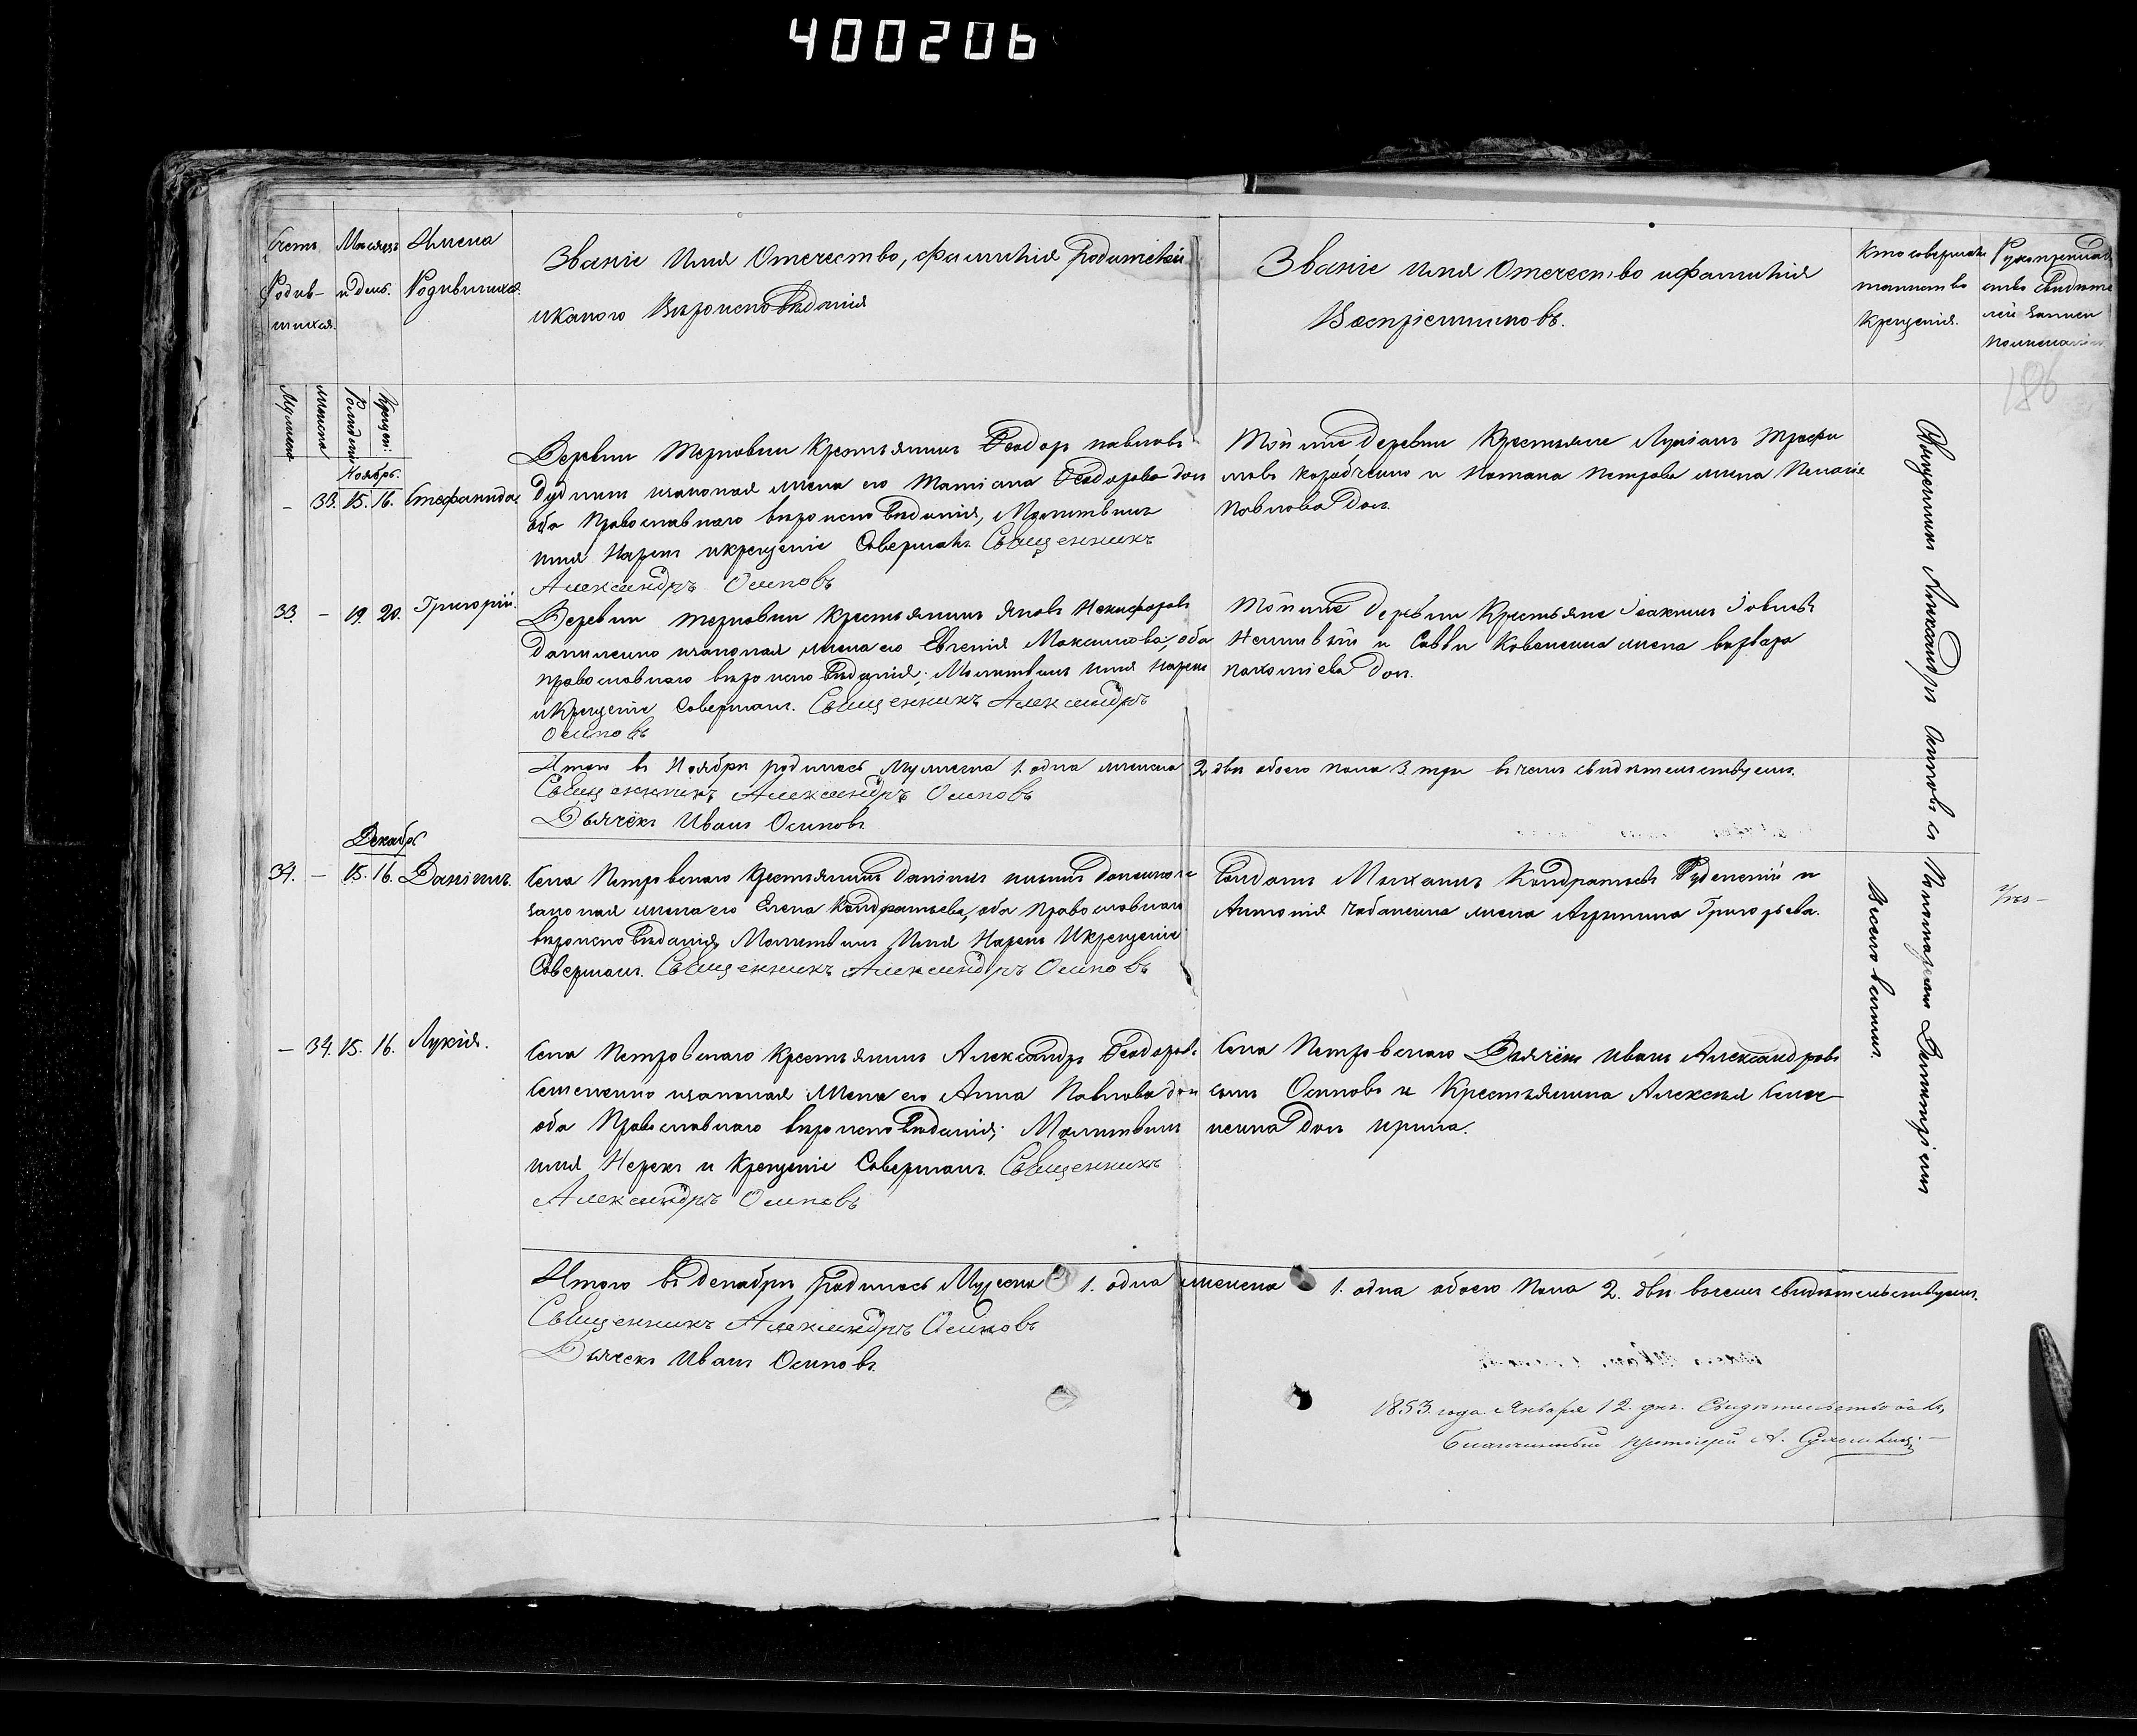 400206
Счетъ Родив-шихся.
Мѣсяцъ и день.
Имена Родившихся.
Званіе Имя Отечество, фамилія родителей
и какого Вѣроисповѣданія
Званіе имя Отечество и фамилія
Воспріемниковъ.
Кто совершалъ
таинство
Крещенія.
Рукоприклад
ство свидѣте
лей записи
по желанію
186
Мужеска
Женска
Рожденія
Крещен:
Ноябрь.
– 33. 15. 16. Стефанида
Деревни Терновки Крестьянинъ Ѳеодоръ Павловъ
законная жена его Татіана Ѳеодорова доч
оба Православнаго вѣроисповѣданія, Молитвилъ
имя Нарекъ и крещеніе Совершалъ Священникъ
Александръ Осиповъ
Той же деревни Крестьяне Лукіанъ Трофи
мовъ и Потапа Петрова жена Пелагія
Павлова доч.
33. – 19. 20. Григорій.
Деревни Терновки Крестьянинъ Яковъ Никифоровъ
Даниленко и законная жена его Евгенія Максимова, оба
православнаго вѣроисповѣданія; Молитвилъ имя нарекъ
и Крещеніе Совершалъ. Священникъ Александръ
Осиповъ
Той же деревни Крестьяне Іоакимъ Іовлевъ
и Саввы Коваленка жена варвара
пахоміева доч.
Итого въ Ноябрѣ родилось Мужеска 1. одна женска 2 двѣ обоего пола 3. три въ чемъ свидѣтельствуемъ.
Священникъ Александръ Осиповъ
Дьячёкъ Иванъ Осиповъ
Декабрь
34. – 15. 16. Даніилъ.
Села Петровскаго Крестьянинъ Даніилъ
законная жена его Елена Кондратьева, оба Православнаго
вѣроисповѣданія, Молитвилъ Имя Нарекъ И крещеніе
Совершалъ. Священникъ Александръ Осиповъ
Солдатъ Кондратьевъ Руденскій и
Антонія Чабаненка жена Агрипина Григорьева.
– 34. 15. 16. Лукія.
Села Петровскаго Крестьянинъ Александръ Ѳеодоровъ
и законная Жена его Анна Павлова доч
оба Православнаго вѣроисповѣданія; Молитвилъ
имя Нарекъ и Крещеніе Совершалъ. Священникъ
Александръ Осиповъ
Села Петровскаго Дьячёкъ Иванъ Александровъ
сынъ Осиповъ и Крестьянина Алексѣя
доч Ирина.
Итого въ декабрѣ родилось Мужеска 1. одна женска 1. одна обоего пола 2. двѣ въ чемъ свидѣтельствуемъ.
Священникъ Александръ Осиповъ
Дьячёкъ Иванъ Осиповъ.
Священникъ Александръ Осиповъ съ Пономаремъ Димитріемъ
1853. года. Января 12. дня. Свидѣтельствовалъ,
Благочинный протоіерей А.